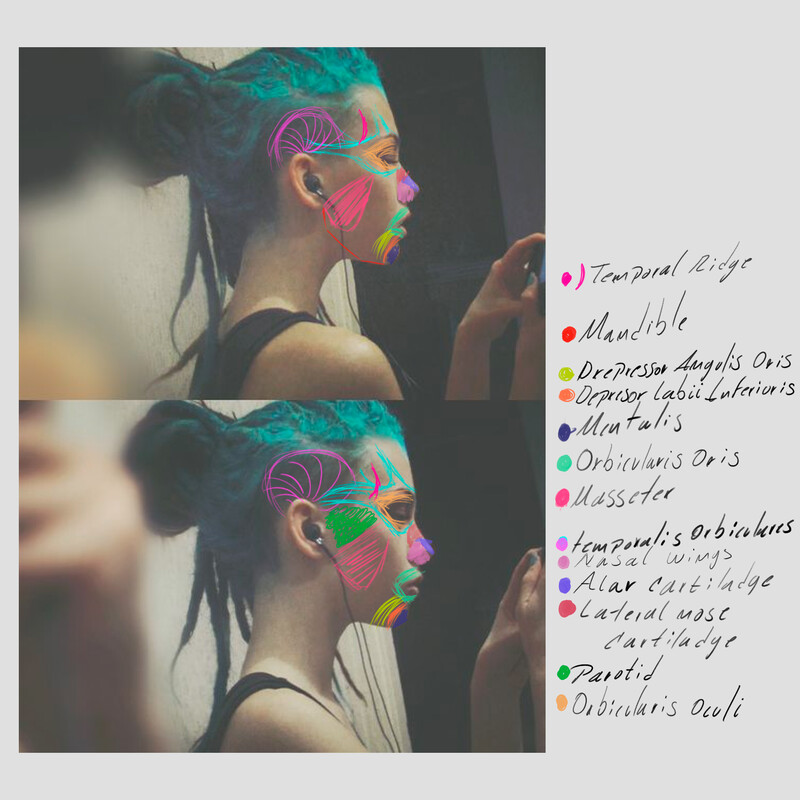 Temporal Ridge
Mandible
Drepressor Angulis Oris
Depresor Labii Inferioris
Mentalis
Orbicularis Oris
Masseter
temporalis Orbiculares
Nasal wings
Alar cartiladge
Lateral nose
cartiladge
Parotid
Orbicularis Oculi